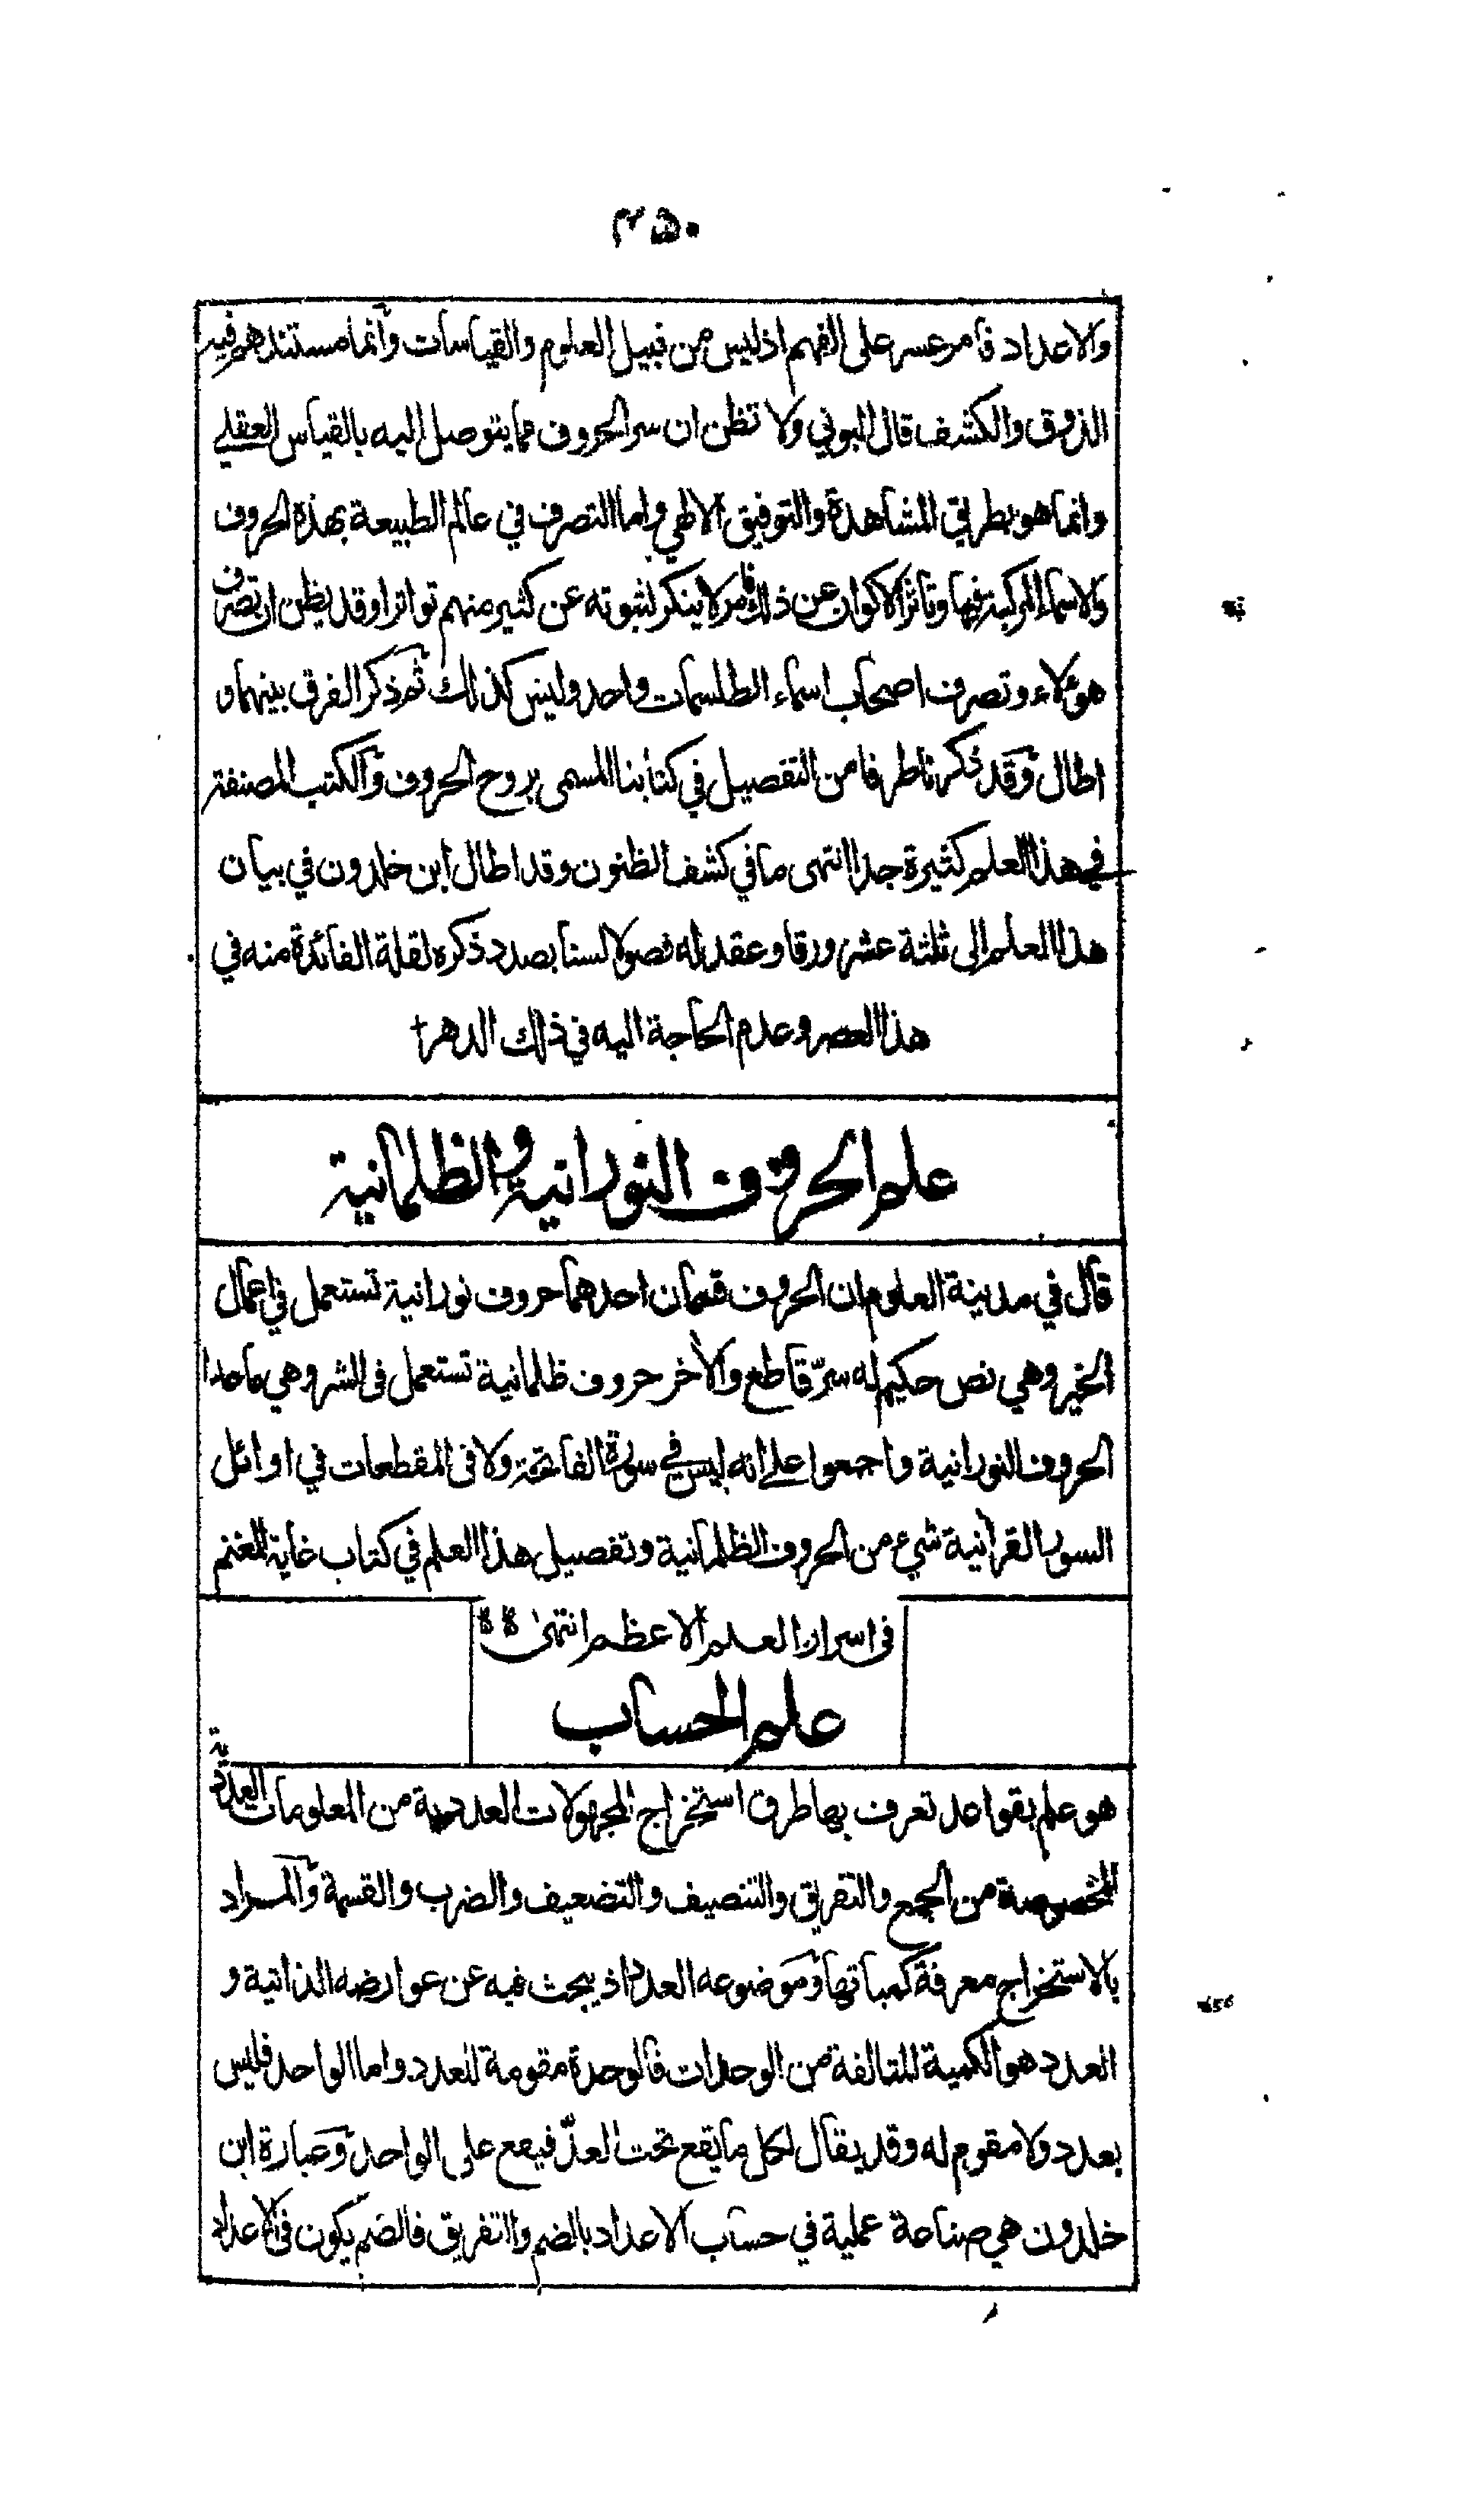 ٤٥٠
والاعداد فامر عسر على الفهم اذ ليس من قبيل العلوم والقياسات وانما مستندهم فيه
الذوق والكشف قال البوني ولا تظن ان سر الحروف مما يتوصل اليه بالقياس العقلي
وانما هو بطريق المشاهدة والتوفيق الالهي واما التصرف في عالم الطبيعة بهذه الحروف
والاسماء المركبة فيها وتاثر الاكوان عن ذلك فامر لا ينكر لثبوته عن كثير منهم تواترا وقد يظن ان تصرف
هؤلاء وتصرف اصحاب اسماء الطلسمات واحد وليس كذلك ثم ذكر الفرق بينهما و
اطال وقد ذكرنا طرفا من التفصيل في كتابنا المسمى بروح الحروف والكتب المصنفة
في هذا العلم كثيرة جدا انتهى ما في كشف الظنون وقد اطال ابن خلدون في بيان
هذا العلم الى ثلثة عشر ورقا وعقد له فصولا لسنا بصدد ذكره لقلة الفائدة منه في
هذا العصر وعدم الحاجة اليه في ذلك الدهر
علم الحروف النورانية والظلمانية
قال في مدينة العلوم ان الحروف قسمان احدهما حروف نورانية تستعمل في اعمال
الخير وهي نص حكيم له سرّ قاطع والاخر حروف ظلمانية تستعمل في الشر وهي ما عدا
الحروف النورانية واجمعوا على انه ليس في سورة الفاتحة ولا في المقطعات في اوائل
السور القرآنية شيء من الحروف الظلمانية وتفصيل هذا العلم في كتاب غاية المغنم
في اسرار العلم الاعظم انتهى
علم الحساب
هو علم بقواعد تعرف بها طرق استخراج المجهولات العددية من المعلومات العددية
المخصوصة من الجمع والتفريق والتنصيف والتضعيف والضرب والقسمة والمراد
بالاستخراج معرفة كمياتها وموضوعه العدد اذ يبحث فيه عن عوارضه الذاتية و
العدد هو الكمية المتالفة من الوحدات فالوحدة مقومة للعدد واما الواحد فليس
بعدد ولا مقوم له وقد يقال لكل ما يقع تحت العدّ فيقع على الواحد وعبارة ابن
خلدون هي صناعة عملية في حساب الاعداد بالضم والتفريق فالضم يكون في الاعداد